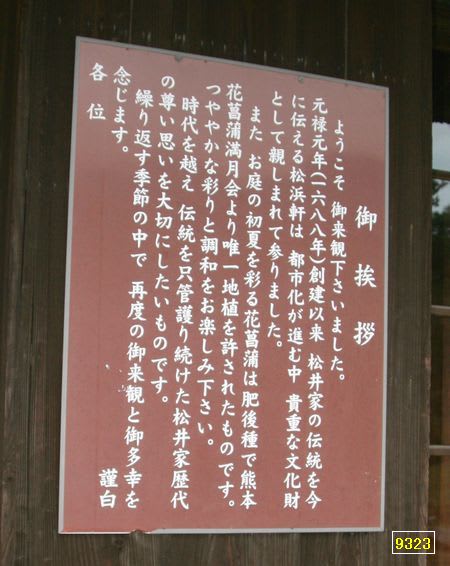 御挨拶
ようこそ 御来観下さいました。
元禄元年(一六八八年)創建以来 松井家の伝統を今
に伝える松浜軒は 都市化が進む中 貴重な文化財
として親しまれて参りました。
また お庭の初夏を彩る花菖蒲は肥後種で熊本
花菖蒲満月会より唯一地植を許されたものです。
つややかな彩りと調和をお楽しみ下さい。
時代を越え 伝統を只管護り続けた松井家歴代
の尊い思いを大切にしたいものです。
繰り返す季節の中で 再度の御来観と御多幸を
念じます。
謹白
各位
9323